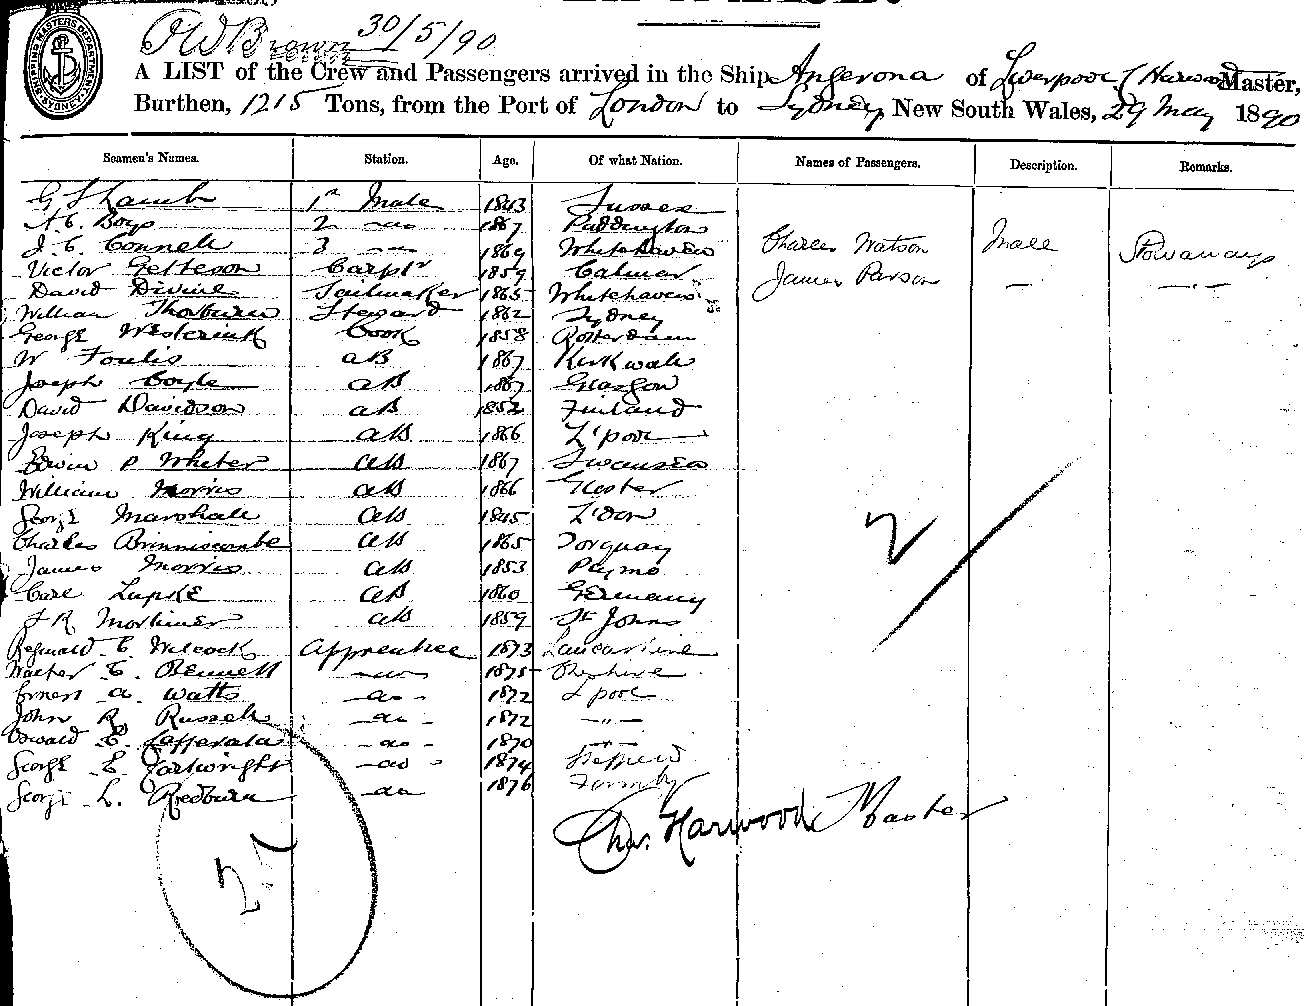 30/5/90
A LIST of the Crew and Passengers arrived in the Ship Angerona of Liverpool C Harwood Master,
Burthen, 1215 Tons, from the Port of London to Sydney, New South Wales, 29 May 1890
Seamen's Names. Station. Age. Of what Nation. Names of Passengers. Description. Remarks.
G S Lamb 1st Mate 1843 Sussex
A. C. Boys 2 -do- 1867 Paddington
J. C. Connell 3 -do- 1869 Whitehaven Charles Watson Male Stowaways
Victor Petterson Carptr 1859 Calmar James Parson — —"—
David Divine Sailmaker 1865 Whitehaven
William Thorburn Steward 1862 Sydney
George Westerink Cook 1858 Rotterdam
W Foulis AB 1867 Kirkwall
Joseph Coyle AB 1867 Glasgow
David Davidson AB 1852 Finland
Joseph King AB 1866 L'pool
Edwin P Whiter AB 1867 Swansea
William Morris AB 1866 Gloster
George Marshall AB 1845 L'don
Charles Brinniscombe AB 1865 Torquay
James Morris AB 1853
Carl Lupke AB 1860 Germany
J R Mortimer AB 1859 St Johns
Reginald C Wilcock Apprentice 1873 Lancashire
Walter C. Bennett -do- 1875 Cheshire
Ernest A. Watts -do- 1872 L'pool
John R. Russell -do- 1872 —"—
Oswald E. -do- 1870 —"—
George E. Cartwright -do- 1874
George L. Redburn -do- 1876 Formby
Chs. Harwood Master
2
27